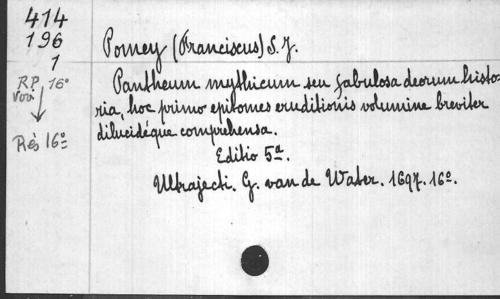 414
196
1
R.P. 16°
Voir
Rés 16°
Pomey (Franciscus) S. J.
Pantheum mythicum seu fabulosa deorum histo-
ria, hoc primo epitomes eruditionis volumine breviter
dilucidéque comprehensa.
Editio 5a.
Ultrajecti. G. van de Water. 1697. 16°.